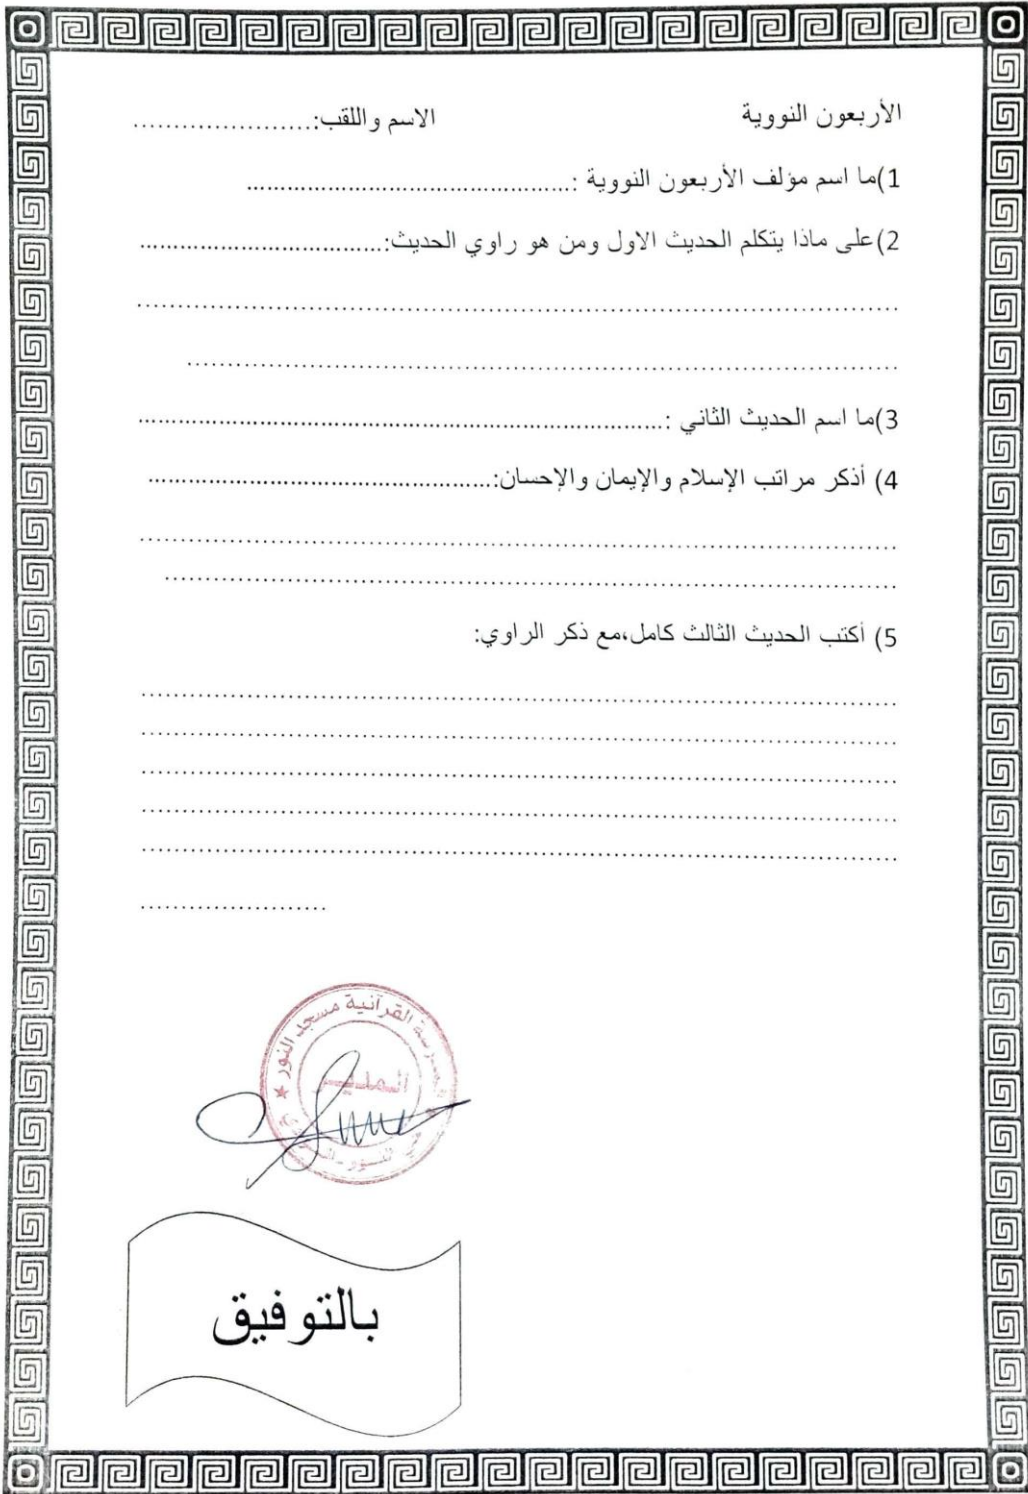 الأربعون النووية الاسم واللقب:......................
1)ما اسم مؤلف الأربعون النووية :................................................
2)على ماذا يتكلم الحديث الاول ومن هو راوي الحديث:....................................
..............................................................................................
........................................................................................
3)ما اسم الحديث الثاني :..............................................................................
4) أذكر مراتب الإسلام والإيمان والإحسان:...................................................
..............................................................................................
...........................................................................................
5) أكتب الحديث الثالث كامل،مع ذكر الراوي:
..............................................................................................
..............................................................................................
..............................................................................................
..............................................................................................
..............................................................................................
.......................
القرآنية مسجد النور
المدير
بالتوفيق